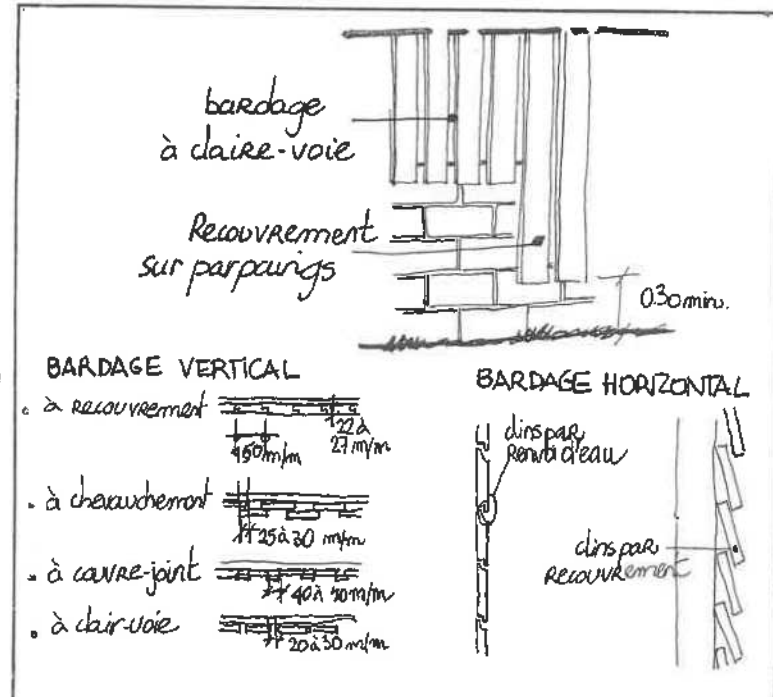 bardage
à claire-voie
Recouvrement
sur parpaings
0.30 min.
BARDAGE VERTICAL
• à recouvrement
22 à
27 m/m
150 m/m
• à chevauchement
25 à 30 m/m
• à couvre-joint
40 à 50 m/m
• à clair-voie
20 à 30 m/m
BARDAGE HORIZONTAL
clins par
Renvoi d'eau
clins par
Recouvrement